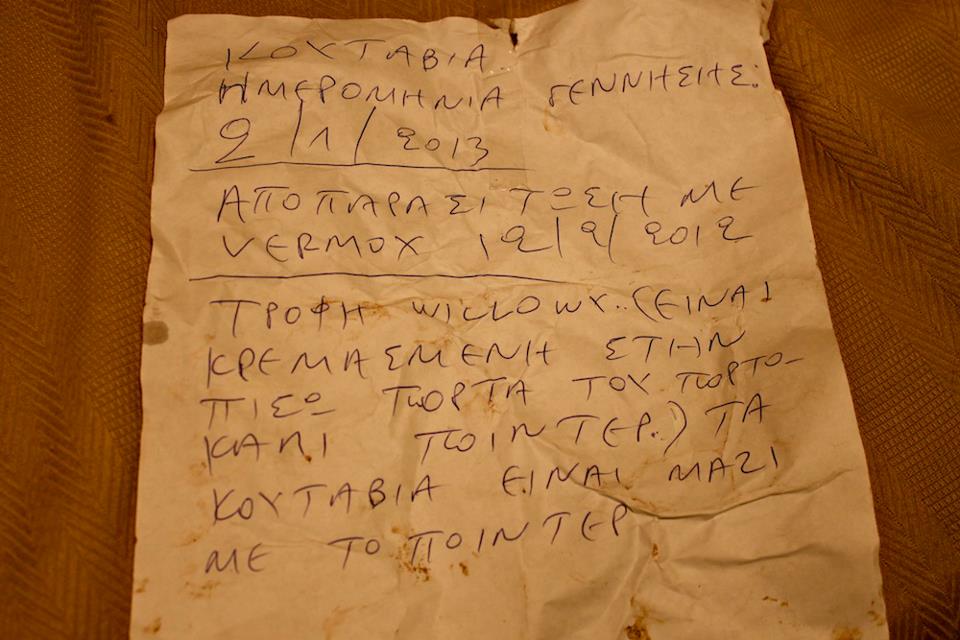 ΚΟΥΤΑΒΙΑ
ΗΜΕΡΟΜΗΝΙΑ ΓΕΝΝΗΣΙΗΣ:
2/1/2013
ΑΠΟΠΑΡΑΣΙΤΩΣΗ ΜΕ
VERMOX 12/2/2012
ΤΡΟΦΗ WILLOWY..(ΕΙΝΑΙ
ΚΡΕΜΑΣΜΕΝΗ ΣΤΗΝ
ΠΙΣΩ ΠΩΡΤΑ ΤΟΥ ΠΩΡΤΟ-
ΚΑΛΙ ΠΩΙΝΤΕΡ.) ΤΑ
ΚΟΥΤΑΒΙΑ ΕΙΝΑΙ ΜΑΖΙ
ΜΕ ΤΟ ΠΟΙΝΤΕΡ